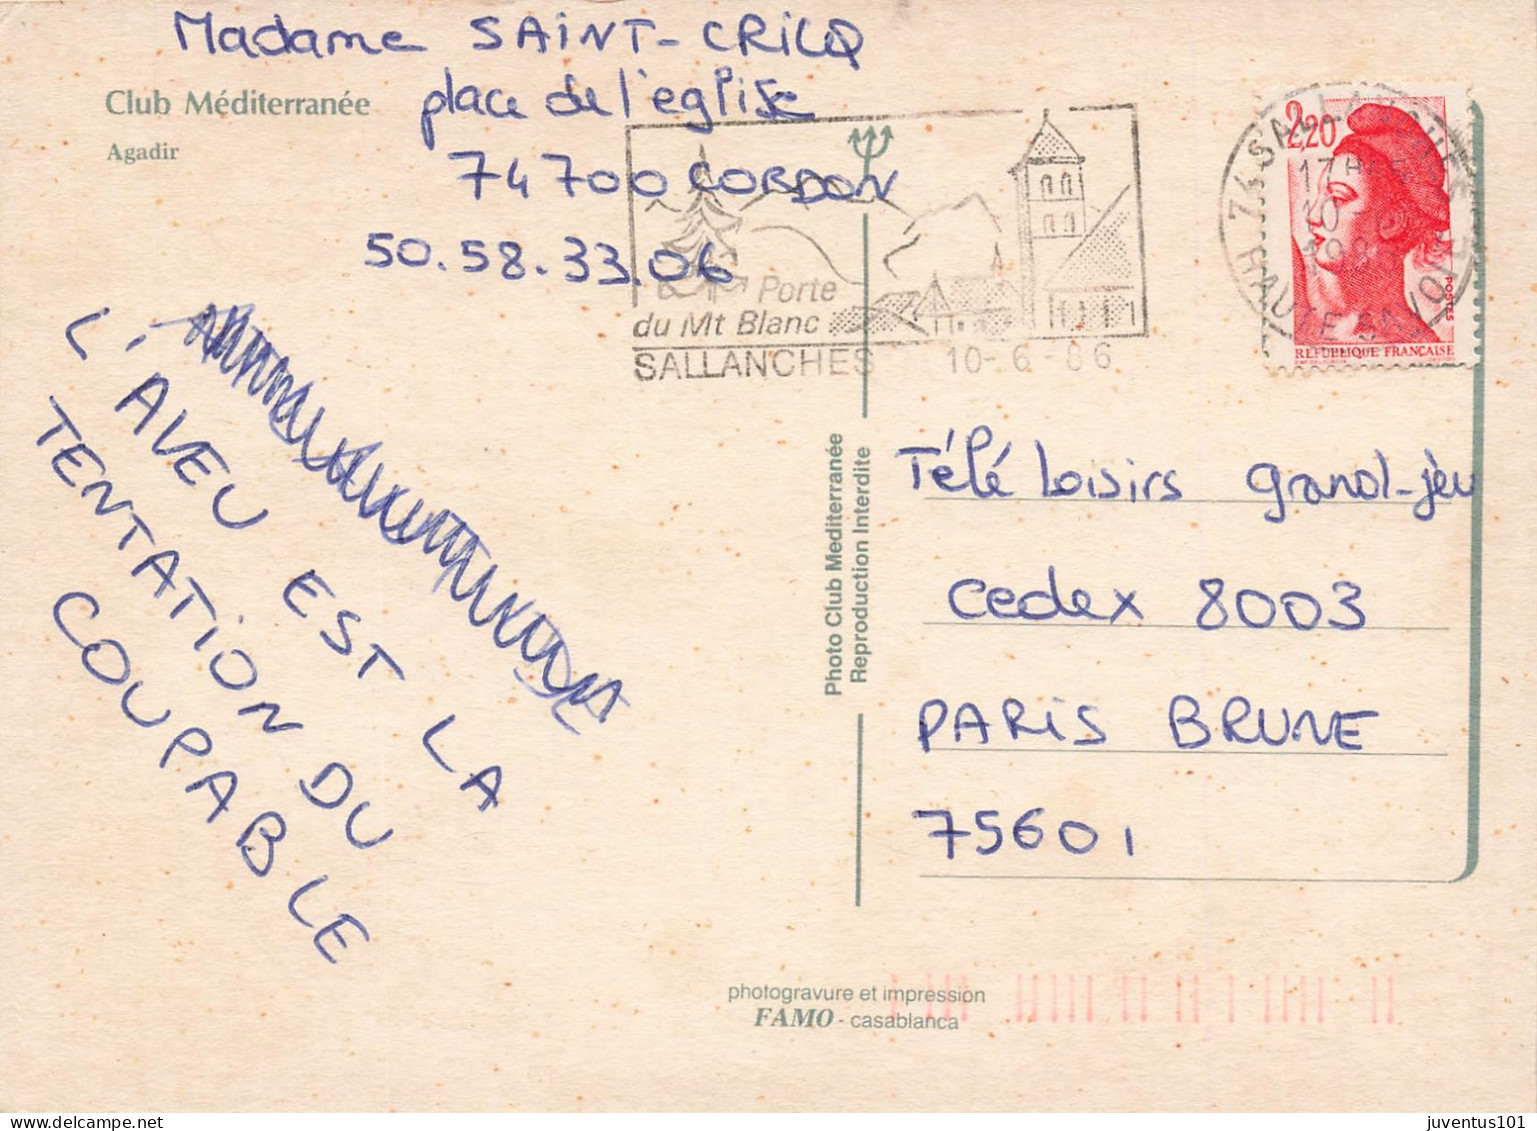 Madame SAINT-CRICQ
place de l'eglise
74700 CORDON
50.58.33.06
Club Méditerranée
Agadir
Porte
du Mt Blanc
SALLANCHES 10-6-86
2,20
POSTES
REPUBLIQUE FRANÇAISE
74 SALLANCHES
17H
10
HAUTE SAVOIE
L'AVEU EST LA
TENTATION DU
COUPABLE
Photo Club Mediterranée
Reproduction Interdite
Télé Loisirs grand-jeu
Cedex 8003
PARIS BRUNE
75601
photogravure et impression
FAMO - casablanca
juventus101